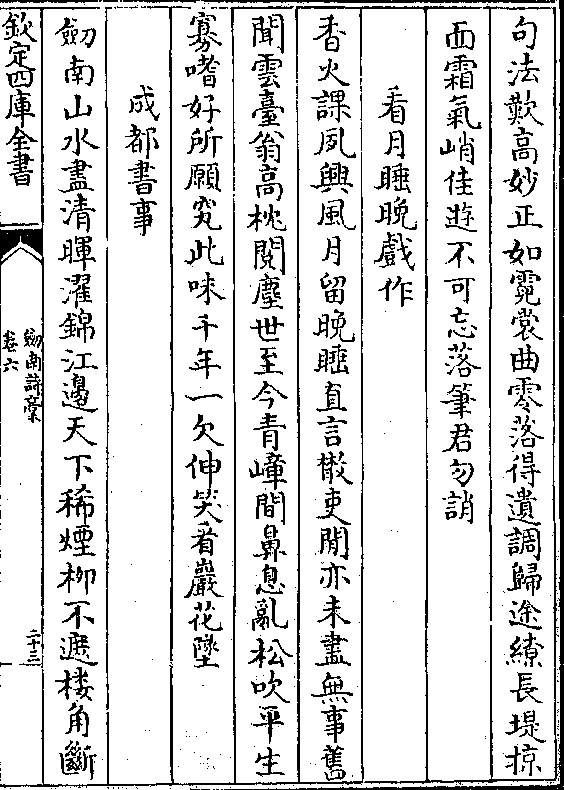 句法歎高妙正如霓裳曲零落得遺調歸途繚長堤掠
面霜氣峭佳遊不可忘落筆君勿誚
看月睡晚戲作
香火課夙興風月留晚睡直言散吏閒亦未盡無事舊
聞雲臺翁高枕閱塵世至今青嶂間鼻息亂松吹平生
寡嗜好所願究此味千年一欠伸笑看巖花墜
成都書事
劒南山水盡清暉濯錦江邊天下稀煙柳不遮樓角斷
欽定四庫全書
劒南詩稾
卷六
二十三